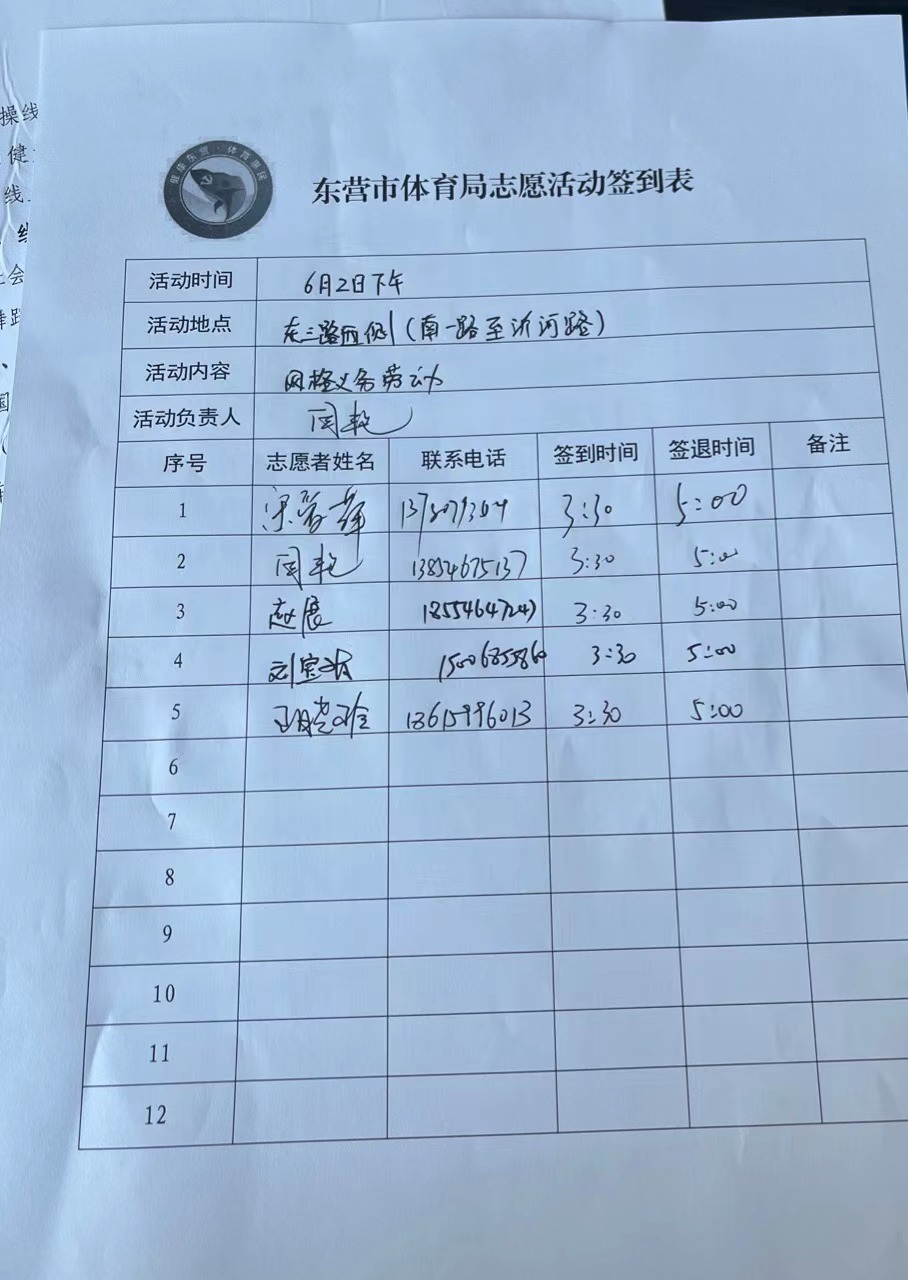 操线
健
线
线
会
国
健康东营·体育惠民
东营市体育局志愿活动签到表
活动时间 6月2日下午
活动地点 东三路西侧(南一路至沂河路)
活动内容 网格义务劳动
活动负责人 周艳
序号 志愿者姓名 联系电话 签到时间 签退时间 备注
1 3:30 5:00
2 周艳 13854675137 3:30 5:00
3 赵展 18554647247 3:30 5:00
4 15006855860 3:30 5:00
5 13615996013 3:30 5:00
6
7
8
9
10
11
12